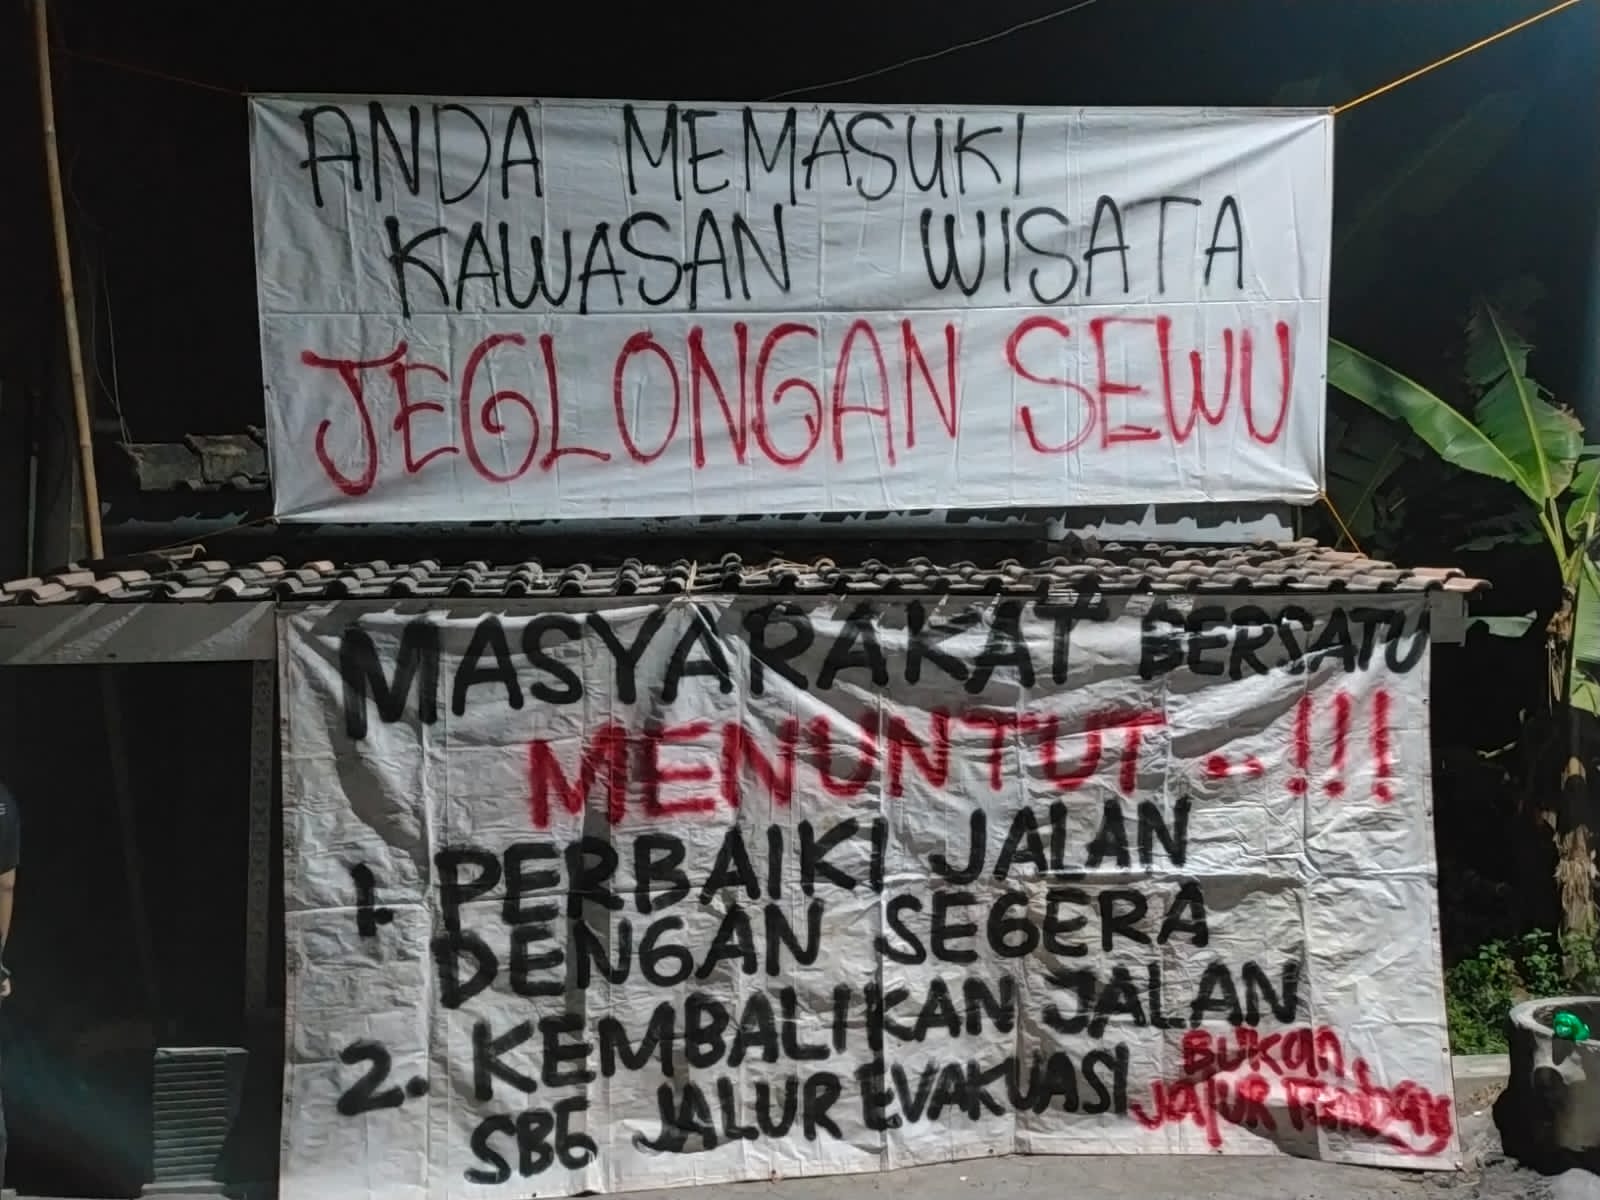 ANDA MEMASUKI
KAWASAN WISATA
JEGLONGAN SEWU
MASYARAKAT BERSATU
MENUNTUT ..!!!
1. PERBAIKI JALAN
DENGAN SEGERA
2. KEMBALIKAN JALAN
SBG JALUR EVAKUASI BUKAN
JALUR TAMBANG